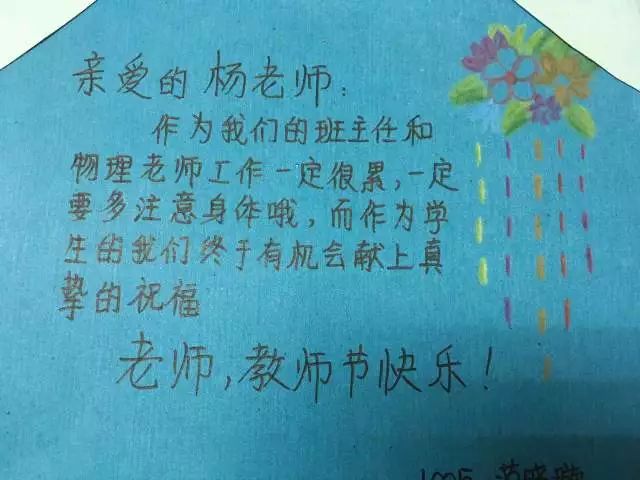 亲爱的杨老师：
作为我们的班主任和
物理老师工作一定很累,一定
要多注意身体哦，而作为学
生的我们终于有机会献上真
挚的祝福
老师,教师节快乐！